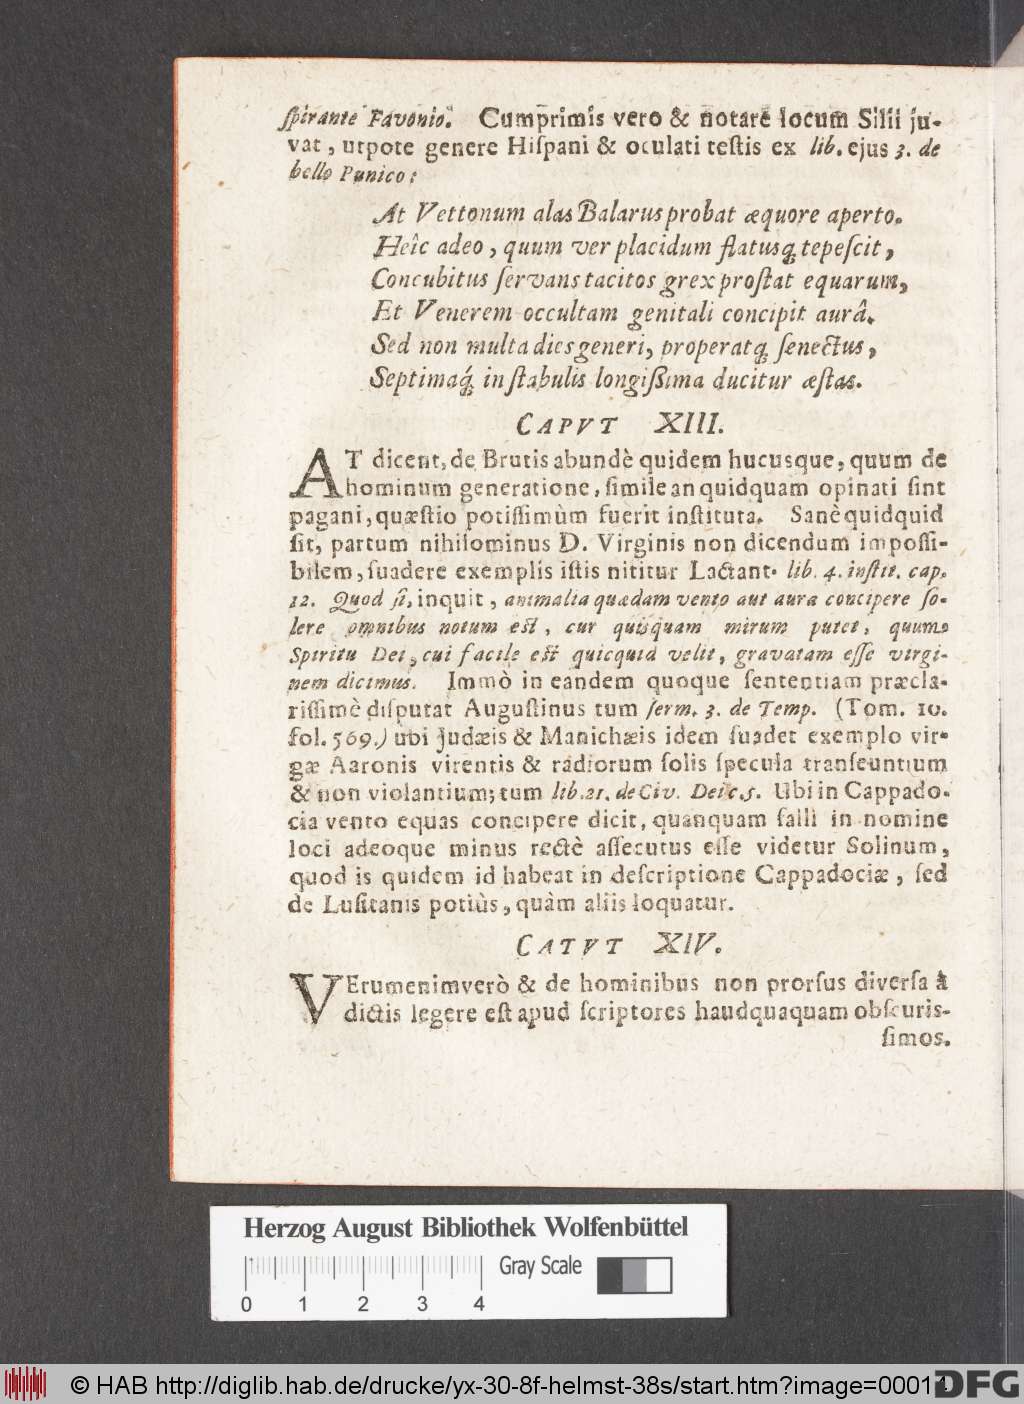 ſpirante Favonio. Cumprimis vero & notare locum Silii ju-
vat, utpote genere Hiſpani & oculati teſtis ex lib. ejus 3. de
bello Punico:
At Vettonum alas Balarus probat æquore aperto.
Heîc adeo, quum ver placidum flatusq́ tepeſcit,
Concubitus ſervans tacitos grex proſtat equarum,
Et Venerem occultam genitali concipit aurâ.
Sed non multa dies generi, properatq́ ſenectus,
Septimaq́ in ſtabulis longiſſima ducitur æſtas.
CAPVT XIII.
AT dicent, de Brutis abundè quidem hucusque, quum de
hominum generatione, ſimile an quidquam opinati ſint
pagani, quæſtio potiſſimùm fuerit inſtituta. Sanè quidquid
ſit, partum nihilominus D. Virginis non dicendum impoſſi-
bilem, ſuadere exemplis iſtis nititur Lactant. lib. 4. inſtit. cap.
12. Quod ſi, inquit, animalia quædam vento aut aura concipere ſo-
lere omnibus notum eſt, cur quisquam mirum putet, quum
Spiritu Dei, cui facile eſt quicquid velit, gravatam eſſe virgi-
nem dicimus. Immò in eandem quoque ſententiam præcla-
riſſimè diſputat Auguſtinus tum ſerm. 3. de Temp. (Tom. 10.
fol. 569.) ubi Judæis & Manichæis idem ſuadet exemplo vir-
gæ Aaronis virentis & radiorum ſolis ſpecula tranſeuntium
& non violantium; tum lib. 21. de Civ. Dei c. 5. Ubi in Cappado-
cia vento equas concipere dicit, quanquam falli in nomine
loci adeoque minus rectè aſſecutus eſſe videtur Solinum,
quod is quidem id habeat in deſcriptione Cappadociæ, ſed
de Luſitanis potiùs, quàm aliis loquatur.
CATVT XIV.
VErumenimverò & de hominibus non prorſus diverſa à
dictis legere eſt apud ſcriptores haudquaquam obſcuris-
ſimos.
Herzog August Bibliothek Wolfenbüttel
Gray Scale
0 1 2 3 4
© HAB http://diglib.hab.de/drucke/yx-30-8f-helmst-38s/start.htm?image=00014
DFG